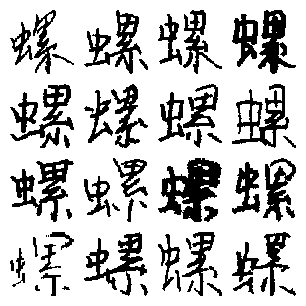 螺螺螺螺
螺螺螺螺
螺螺螺螺
螺螺螺螺